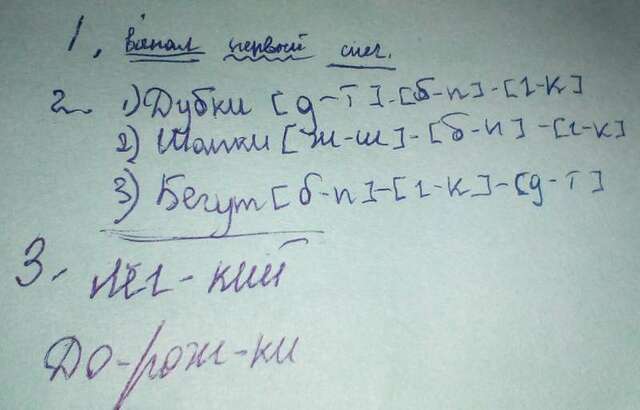 1, выпал первый снег.
2. 1) Дубки [д-т]-[б-п]-[г-к]
2) Шапки [ж-ш]-[б-п]-[г-к]
3) Бегут [б-п]-[г-к]-[д-т]
3. лёг-кий
До-рож-ки